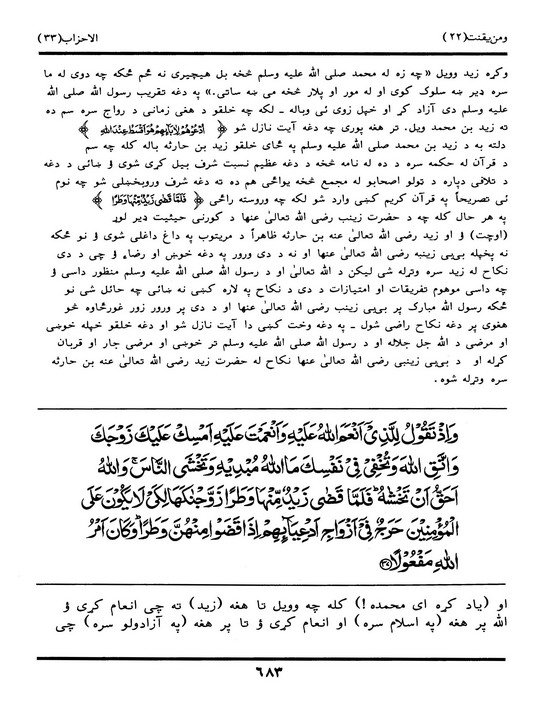 ومن يقنت(٢٢) الاحزاب(٣٣)
وکړه زید وویل «چه زه له محمد صلی الله علیه وسلم څخه بل هیچیری نه ځم ځکه چه دوی له ما
سره ډیر ښه سلوک کوی او له مور او پلار څخه می ښه ساتی.» په دغه تقریب رسول الله صلی الله
علیه وسلم دی آزاد کړ او خپل زوی ئی وباله ـ لکه چه خلقو د هغی زمانی د رواج سره سم ده
ته زید بن محمد ویل. تر هغه پوری چه دغه آیت نازل شو ﴿ اُدْعُوْهُمْ لِاٰبَآىِٕهِمْ هُوَ اَقْسَطُ عِنْدَ اللّٰهِ ﴾
دلته به د زید بن محمد صلی الله علیه وسلم په ځای خلقو زید بن حارثه باله کله چه سم
د قرآن له حکمه سره د ده له نامه څخه د دغه عظیم نسبت شرف بیل کړی شوی ؤ ښائی د دغه
د تلافی دپاره د ټولو اصحابو له مجمع څخه یواځی هم ده ته دغه شرف وروبخښلی شو چه نوم
ئی تصریحاً په قرآن کریم کښی وارد شو لکه چه وروسته راځی ﴿ فَلَمَّا قَضٰى زَيْدٌ مِّنْهَا وَطَرًا ﴾
په هر حال کله چه د حضرت زینب رضی الله تعالیٰ عنها د کورنی حیثیت ډیر لوړ
(اوچت) ؤ او زید رضی الله تعالیٰ عنه بن حارثه ظاهراً د مریتوب په داغ داغلی شوی ؤ نو ځکه
نه پخپله بی بی زینبه رضی الله تعالیٰ عنها او نه د دی ورور په دغه خوښ او رضاء ؤ چی د دی
نکاح له زید سره وتړله شی لیکن د الله تعالیٰ او د رسول الله صلی الله علیه وسلم منظور داسی ؤ
چه داسی موهوم تفریقات او امتیازات د دی د نکاح په لاره کښی نه ښائی چه حائل شی نو
ځکه رسول الله مبارک پر بی بی زینب رضی الله تعالیٰ عنها او د دی پر ورور زور غورځاوه څو
هغوی پر دغه نکاح راضی شول ـ په دغه وخت کښی دا آیت نازل شو او دغه خلقو خپله خوښی
او مرضی د الله جل جلاله او د رسول الله صلی الله علیه وسلم تر خوښی او مرضی جار او قربان
کړله او د بی بی زینبی رضی الله تعالیٰ عنها نکاح له حضرت زید رضی الله تعالیٰ عنه بن حارثه
سره وتړله شوه.
وَاِذْ تَقُوْلُ لِلَّذِيْٓ اَنْعَمَ اللّٰهُ عَلَيْهِ وَاَنْعَمْتَ عَلَيْهِ اَمْسِكْ عَلَيْكَ زَوْجَكَ
وَاتَّقِ اللّٰهَ وَتُخْفِيْ فِيْ نَفْسِكَ مَا اللّٰهُ مُبْدِيْهِ وَتَخْشَى النَّاسَ ۚ وَاللّٰهُ
اَحَقُّ اَنْ تَخْشٰىهُ ۭ فَلَمَّا قَضٰى زَيْدٌ مِّنْهَا وَطَرًا زَوَّجْنٰكَهَا لِكَيْ لَا يَكُوْنَ عَلَى
الْمُؤْمِنِيْنَ حَرَجٌ فِيْٓ اَزْوَاجِ اَدْعِيَآىِٕهِمْ اِذَا قَضَوْا مِنْهُنَّ وَطَرًا ۭ وَكَانَ اَمْرُ
اللّٰهِ مَفْعُوْلًا ﴿٣٧﴾
او (یاد کړه ای محمده!) کله چه وویل تا هغه (زید) ته چی انعام کړی ؤ
الله پر هغه (په اسلام سره) او انعام کړی ؤ تا پر هغه (په آزادولو سره) چی
٦٨٣